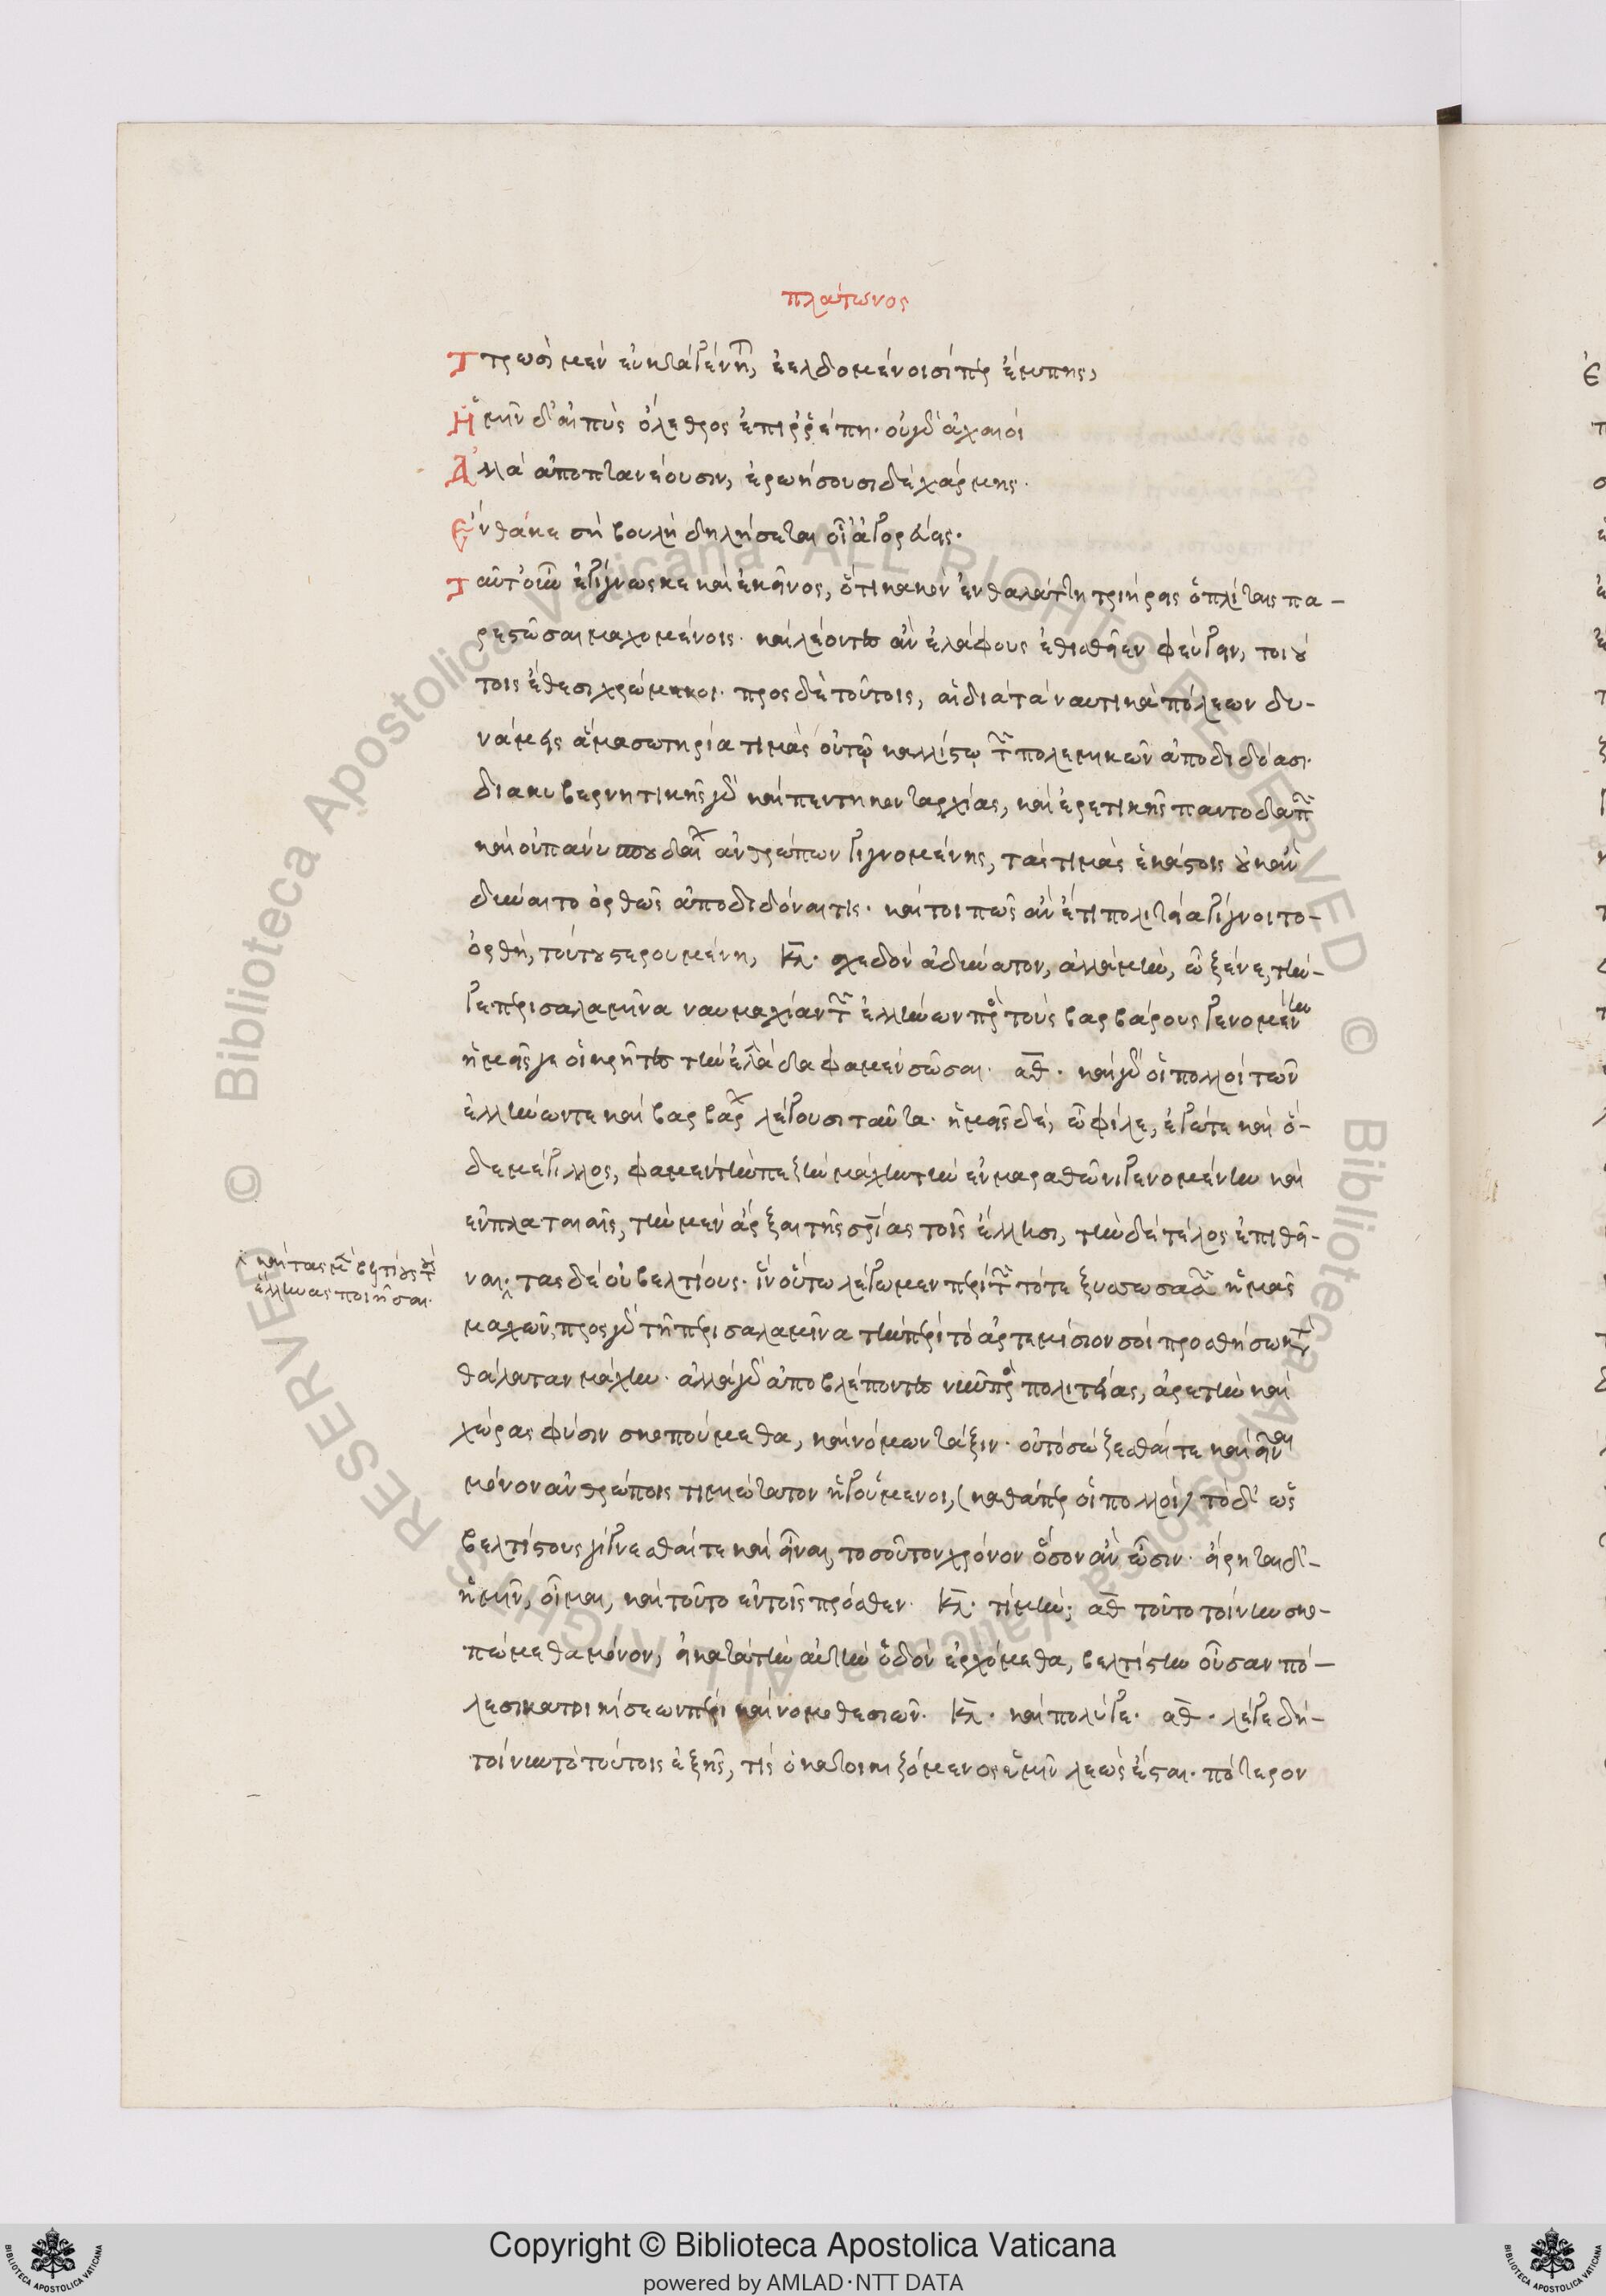 πλάτωνος
Τρωσὶ μὲν εὐκτὰ γένηται, ἐελδομένοισί περ ἔμπης,
Ἡμῖν δ' αἰπὺς ὄλεθρος ἐπιρρέπῃ· οὐ γὰρ ἀχαιοὶ
Ἀλλὰ ἀποπτανέουσιν, ἐρωήσουσι δὲ χάρμης·
Ἔνθά κε σὴ βουλὴ δηλήσεται οἷ' ἀγορεύεις·
Ταῦτ' οὖν ἐγίγνωσκε καὶ ἐκεῖνος, ὅτι κακὸν ἐν θαλάττῃ τριήρεις ὁπλίταις πα-
ρεστῶσαι μαχομένοις· καὶ λέοντες ἂν ἐλάφους ἐθισθεῖεν φεύγειν, τοιού
τοις ἔθεσι χρώμενοι· πρὸς δὲ τούτοις, αἱ διὰ τὰ ναυτικὰ πόλεων δυ-
νάμεις ἅμα σωτηρίᾳ τιμὰς οὐ τῷ καλλίστῳ τῶν πολεμικῶν ἀποδιδόασι·
διὰ κυβερνητικῆς γὰρ καὶ πεντηκονταρχίας, καὶ ἐρετικῆς παντοδαπῶν
καὶ οὐ πάνυ σπουδαίων ἀνθρώπων γιγνομένης, τὰς τιμὰς ἑκάστοις οὐκ ἂν
δύναιτο ὀρθῶς ἀποδιδόναι τις· καί τοι πῶς ἂν ἔτι πολιτεία γίγνοιτο-
ὀρθή, τούτου στερουμένη, ΚΛ· σχεδὸν ἀδύνατον, ἀλλὰ μὴν, ὦ ξένε, τήν-
γε περὶ σαλαμῖνα ναυμαχίαν τῶν ἑλλήνων πρὸς τοὺς βαρβάρους γενομένην
ἡμεῖς γε οἱ κρῆτες τὴν ἑλλάδα φαμὲν σῶσαι· ΑΘ· καὶ γὰρ οἱ πολλοὶ τῶν
ἑλλήνων τε καὶ βαρβάρων λέγουσι ταῦτα· ἡμεῖς δὲ, ὦ φίλε, ἐγώ τε καὶ ὅ-
δε μέγιλλος, φαμὲν τὴν πεζὴν μάχην τὴν ἐν μαραθῶνι γενομένην καὶ
ἐν πλαταιαῖς, τὴν μὲν ἄρξαι τῆς σωτηρίας τοῖς ἕλλησι, τὴν δὲ τέλος ἐπιθεῖ-
καὶ τὰς μὲν βελτίους τοὺς
ἕλληνας ποιῆσαι·
ναι· τὰς δὲ οὐ βελτίους· ἵν' οὕτω λέγωμεν περὶ τῶν τότε ξυσσωσασῶν ἡμᾶς
μαχῶν, πρὸς γὰρ τῇ περὶ σαλαμῖνα τὴν περὶ τὸ ἀρτεμίσιον σοὶ προσθήσω κατὰ
θάλατταν μάχην· ἀλλὰ γὰρ ἀποβλέποντες νῦν πρὸς πολιτείας, ἀρετὴν καὶ
χώρας φύσιν σκοπούμεθα, καὶ νόμων τάξιν· οὐ τὸ σώζεσθαί τε καὶ εἶναι
μόνον ἀνθρώποις τιμιώτατον ἡγούμενοι, (καθάπερ οἱ πολλοί) τὸ δ' ὡς
βελτίστους γίγνεσθαί τε καὶ εἶναι, τοσοῦτον χρόνον ὅσον ἂν ὦσιν· εἴρηται δ'-
ἡμῖν, οἶμαι, καὶ τοῦτο ἐν τοῖς πρόσθεν· ΚΛ· τί μήν; ΑΘ τοῦτο τοίνυν σκο-
πώμεθα μόνον, εἰ κατὰ τὴν αὐτὴν ὁδὸν ἐρχόμεθα, βελτίστην οὖσαν πό-
λεσι κατοικίσεων περὶ καὶ νομοθεσιῶν· ΚΛ· καὶ πολύ γε· ΑΘ· λέγε δή-
τοίνυν τὸ τούτοις ἑξῆς, τίς ὁ κατοικιζόμενος ὑμῖν λεὼς ἔσται· πότερον
Copyright © Biblioteca Apostolica Vaticana
powered by AMLAD·NTT DATA